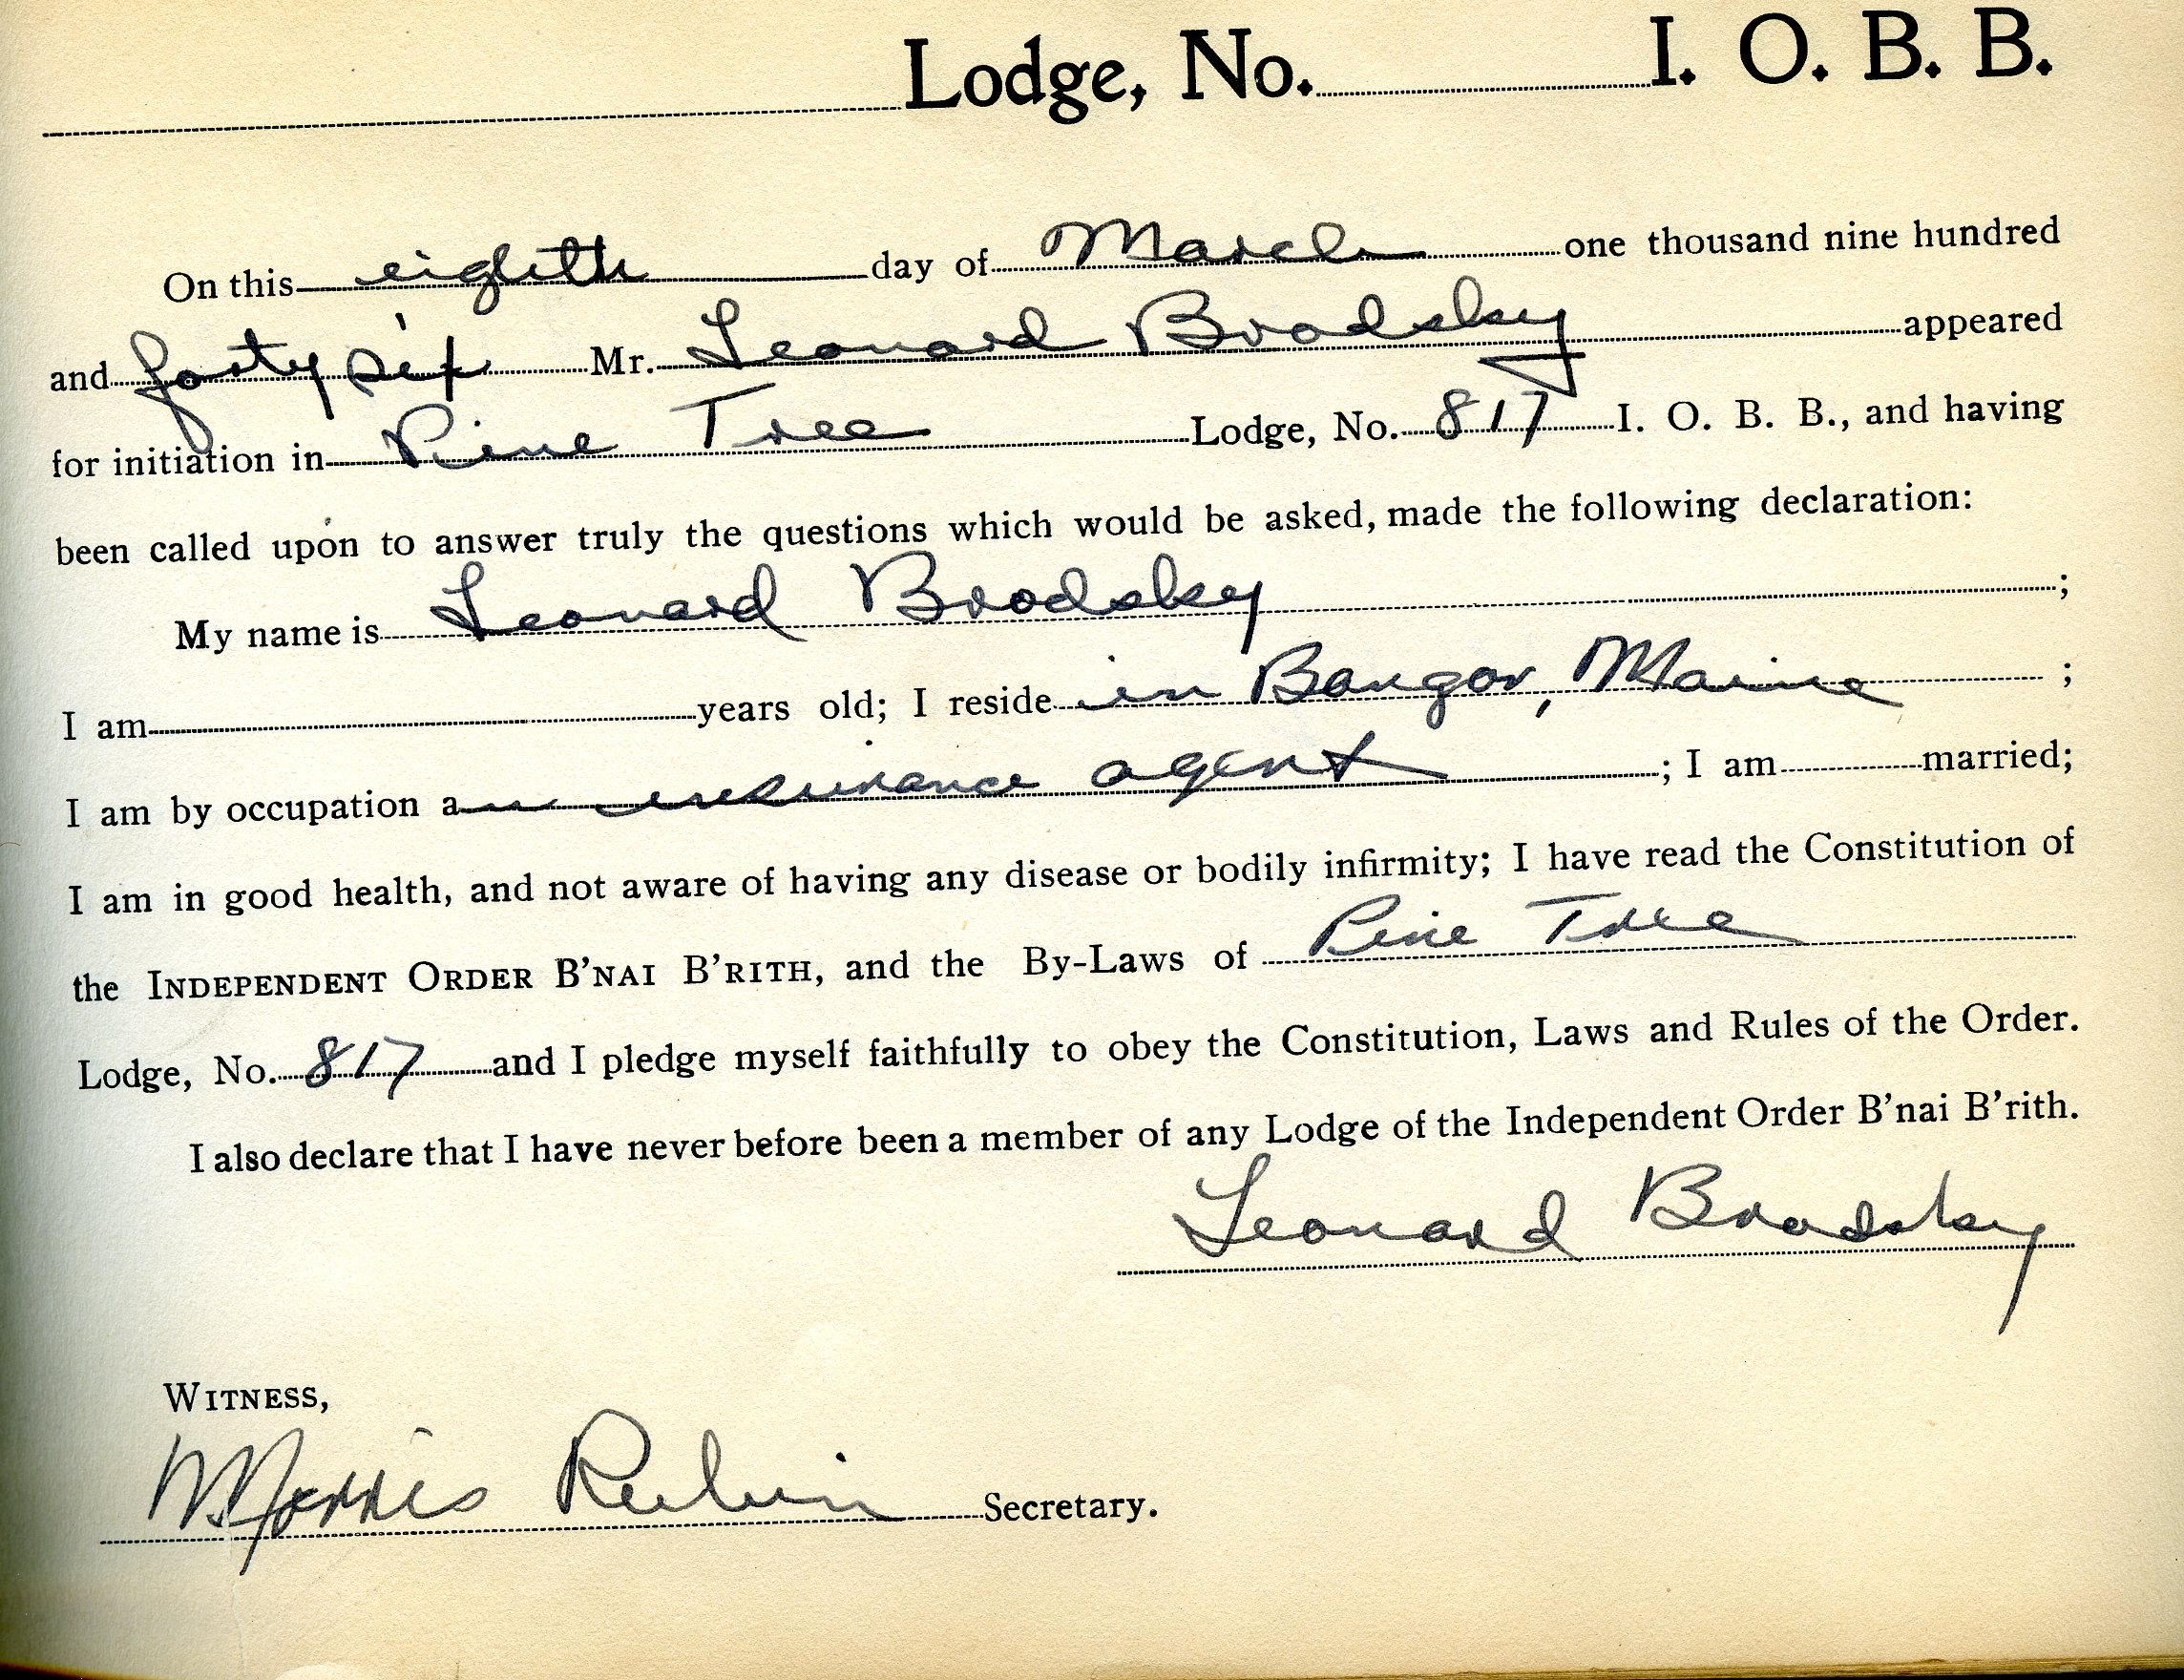 Lodge, No. I. O. B. B.
On this eighth day of March one thousand nine hundred
and forty six Mr. Leonard Brodsky appeared
for initiation in Pine Tree Lodge, No. 817 I. O. B. B., and having
been called upon to answer truly the questions which would be asked, made the following declaration:
My name is Leonard Brodsky ;
I am years old; I reside in Bangor, Maine ;
I am by occupation an insurance agent ; I am married;
I am in good health, and not aware of having any disease or bodily infirmity; I have read the Constitution of
the INDEPENDENT ORDER B'NAI B'RITH, and the By-Laws of Pine Tree
Lodge, No. 817 and I pledge myself faithfully to obey the Constitution, Laws and Rules of the Order.
I also declare that I have never before been a member of any Lodge of the Independent Order B'nai B'rith.
Leonard Brodsky
WITNESS,
Morris Rubin Secretary.